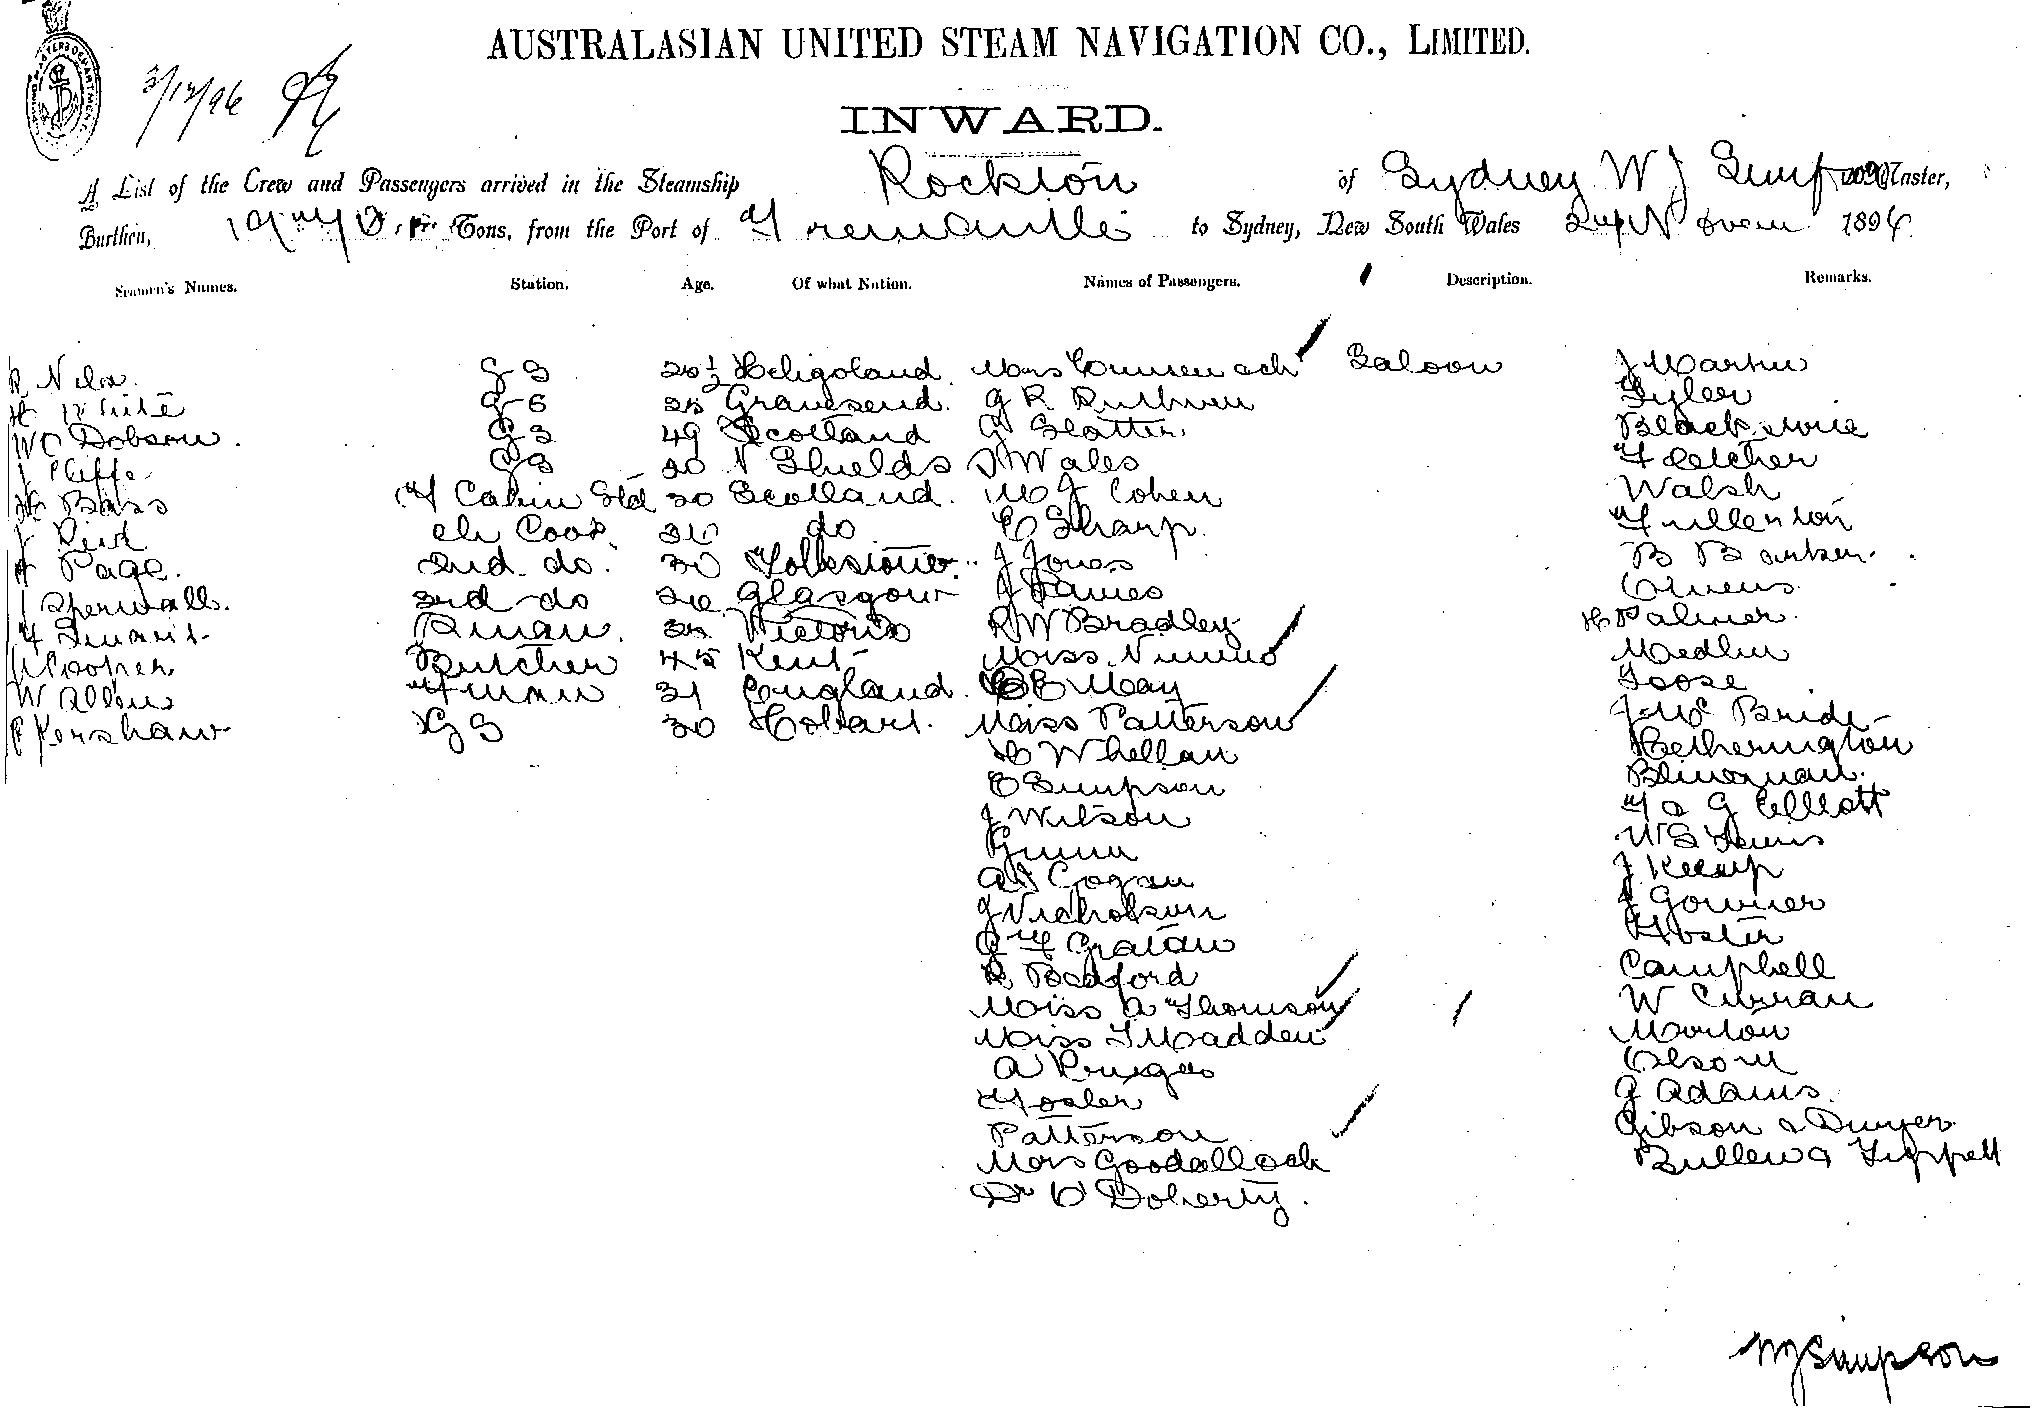 AUSTRALASIAN UNITED STEAM NAVIGATION CO., LIMITED.
3/12/96
INWARD.
A List of the Crew and Passengers arrived in the Steamship Rockton of Sydney W J Simpson Master,
Burthen, Tons, from the Port of Fremantle to Sydney, New South Wales Novem 1896
Seamen's Names. Station. Age. Of what Nation. Names of Passengers. Description. Remarks.
R G S Heligoland Mrs Saloon J Martin
H White G S 25 Gravesend. G R Ruthven Tyler
W C Dobson. G S 49 Scotland G Slatter. Blackwire
J Cliffe G S 20 N Shields J Wales Fletcher
H Bass F Cabin Std 30 Scotland. M J Cohen Walsh
J Reid ch Cook. do E Sharp.
A Page. 2nd do. 30 Folkestone. J Jones B Barker.
J 3rd do Glasgow J James Owens.
F Victoria R W Bradley H Palmer.
J Cooper Butcher 45 Kent Miss Nimmo Medlin
W Allens F man 31 England. C E May Goose
P Kershaw G S 30 Hobart. Miss Patterson J McBride
H Whellan Hetherington
E Simpson
J Wilson F a G Elliott
Gunn W S
A J Cogan J Kemp
J Nicholson J
G F Gratan Foster
R Bedford Campbell
Miss A Thomson W Curran
Miss T Madden Morton
A Olsom
Fosler G Adams.
Patterson Gibson & Dwyer
Mrs Goodallock Bullen & Tippett
Dr O Doherty.
W J Simpson